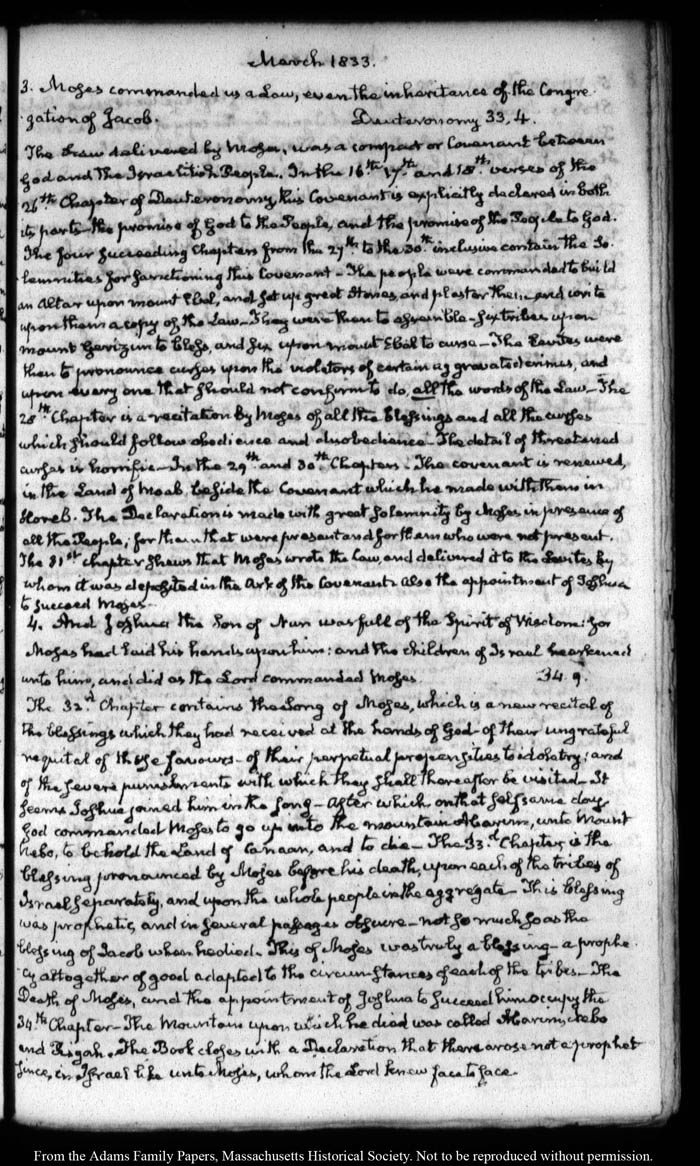 March 1833.
3. Moses commanded us a Law, even the inheritance of the Congre
gation of Jacob. Deuteronomy 33, 4.
The Law delivered by Moses, was a compact or Covenant between
God and the Israelitish People. In the 16th 17th and 18th verses of the
26th Chapter of Deuteronomy, this Covenant is explicitly declared in both
its parts—the promise of God to the People, and the promise of the People to God.
The four succeeding Chapters from the 27th to the 30th inclusive contain the So-
lemnities for sanctioning this Covenant—The people were commanded to build
an Altar upon mount Ebal, and set up great Stones, and plaster them and write
upon them a copy of the Law—They were then to assemble—six tribes upon
mount Gerizim to bless, and six upon mount Ebal to curse—The Levites were
then to pronounce curses upon the violators of certain aggravated crimes, and
upon every one that should not confirm to do, all the words of the Law—The
28th Chapter is a recitation by Moses of all the blessings and all the curses
which should follow obedience and disobedience—The detail of threatened
curses is horrific—In the 29th and 30th Chapters. The covenant is renewed,
in the Land of Moab, beside the Covenant which he made with them in
Horeb. The Declaration is made with great solemnity by Moses in presence of
all the People, for them that were present and for them who were not present.
The 31st chapter shews that Moses wrote the Law, and delivered it to the Levites by
whom it was deposited in the Ark of the Covenant. Also the appointment of Joshua
to succeed Moses.
4. And Joshua the Son of Nun was full of the Spirit of Wisdom: for
Moses had laid his hands upon him: and the children of Israel hearkened
unto him, and did as the Lord commanded Moses. 34. 9.
The 32d Chapter contains the Song of Moses, which is a new recital of
the blessings which they had received at the hands of God—of their ungrateful
requital of those favours—of their perpetual propensities to idolatry; and
of the severe punishments with which they shall thereafter be visited—It
seems Joshua joined him in the song—After which on that self same day
God commanded Moses to go up into the mountain Abarim, unto Mount
Nebo, to behold the Land of Canaan, and to die—The 33d Chapter, is the
blessing pronounced by Moses before his death, upon each of the tribes of
Israel separately, and upon the whole people in the aggregate—This blessing
was prophetic, and in several passages obscure—not so much so as the
blessing of Jacob when he died. This of Moses was truly a blessing—a prophe-
cy altogether of good adapted to the circumstances of each of the tribes—The
Death of Moses, and the appointment of Joshua to succeed him occupy the
34th Chapter—The Mountain upon which he died was called Abarim, Nebo
and Pisgah. The Book closes with a Declaration that there arose not a prophet
since, in Israel like unto Moses, whom the Lord knew face to face.
From the Adams Family Papers, Massachusetts Historical Society. Not to be reproduced without permission.